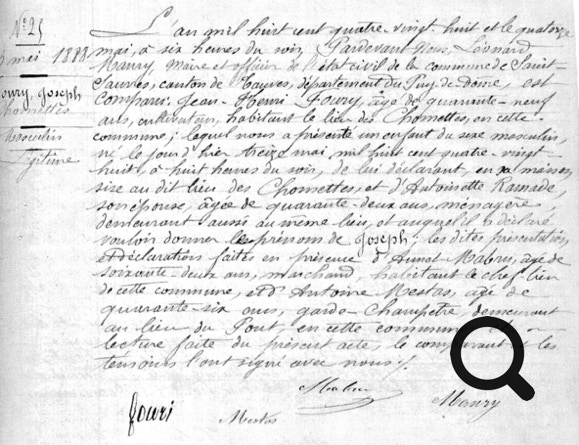 N.° 25
mai 1888
Foury, Joseph
Chomettes
Masculin
Légitime
L'an mil huit cent quatre-vingt-huit et le quatorze
mai, à six heures du soir, Pardevant Nous, Léonard
Maury Maire et officier de l'état civil de la commune de Saint-
Sauves, canton de Tauves, département du Puy-de-Dôme, est
comparu Jean-Henri Foury, âgé de quarante-neuf
ans, cultivateur, habitant le lieu des Chomettes, en cette
commune; lequel nous a présenté un enfant du sexe masculin,
né le jour d'hier treize mai, mil huit cent quatre-vingt-
huit, à huit heures du soir, de lui déclarant, en sa maison,
sise au dit lieu des Chomettes, et d'Antoinette Ramade,
son épouse, âgée de quarante-deux ans, ménagère,
demeurant aussi au même lieu, et auquel il a déclaré
vouloir donner le prénom de Joseph; les dites présentation,
et déclaration faites en présence d'Annet Mabru, âgé de
soixante-deux ans, marchand, habitant le chef-lieu
de cette commune, et d'Antoine Mestas, âgé de
quarante-six ans, garde-Champêtre, demeurant
au lieu du Pont, en cette commune
lecture faite du présent acte, le comparant et les
témoins l'ont signé avec nous./.
Mabru
fouri
Mestas
Maury